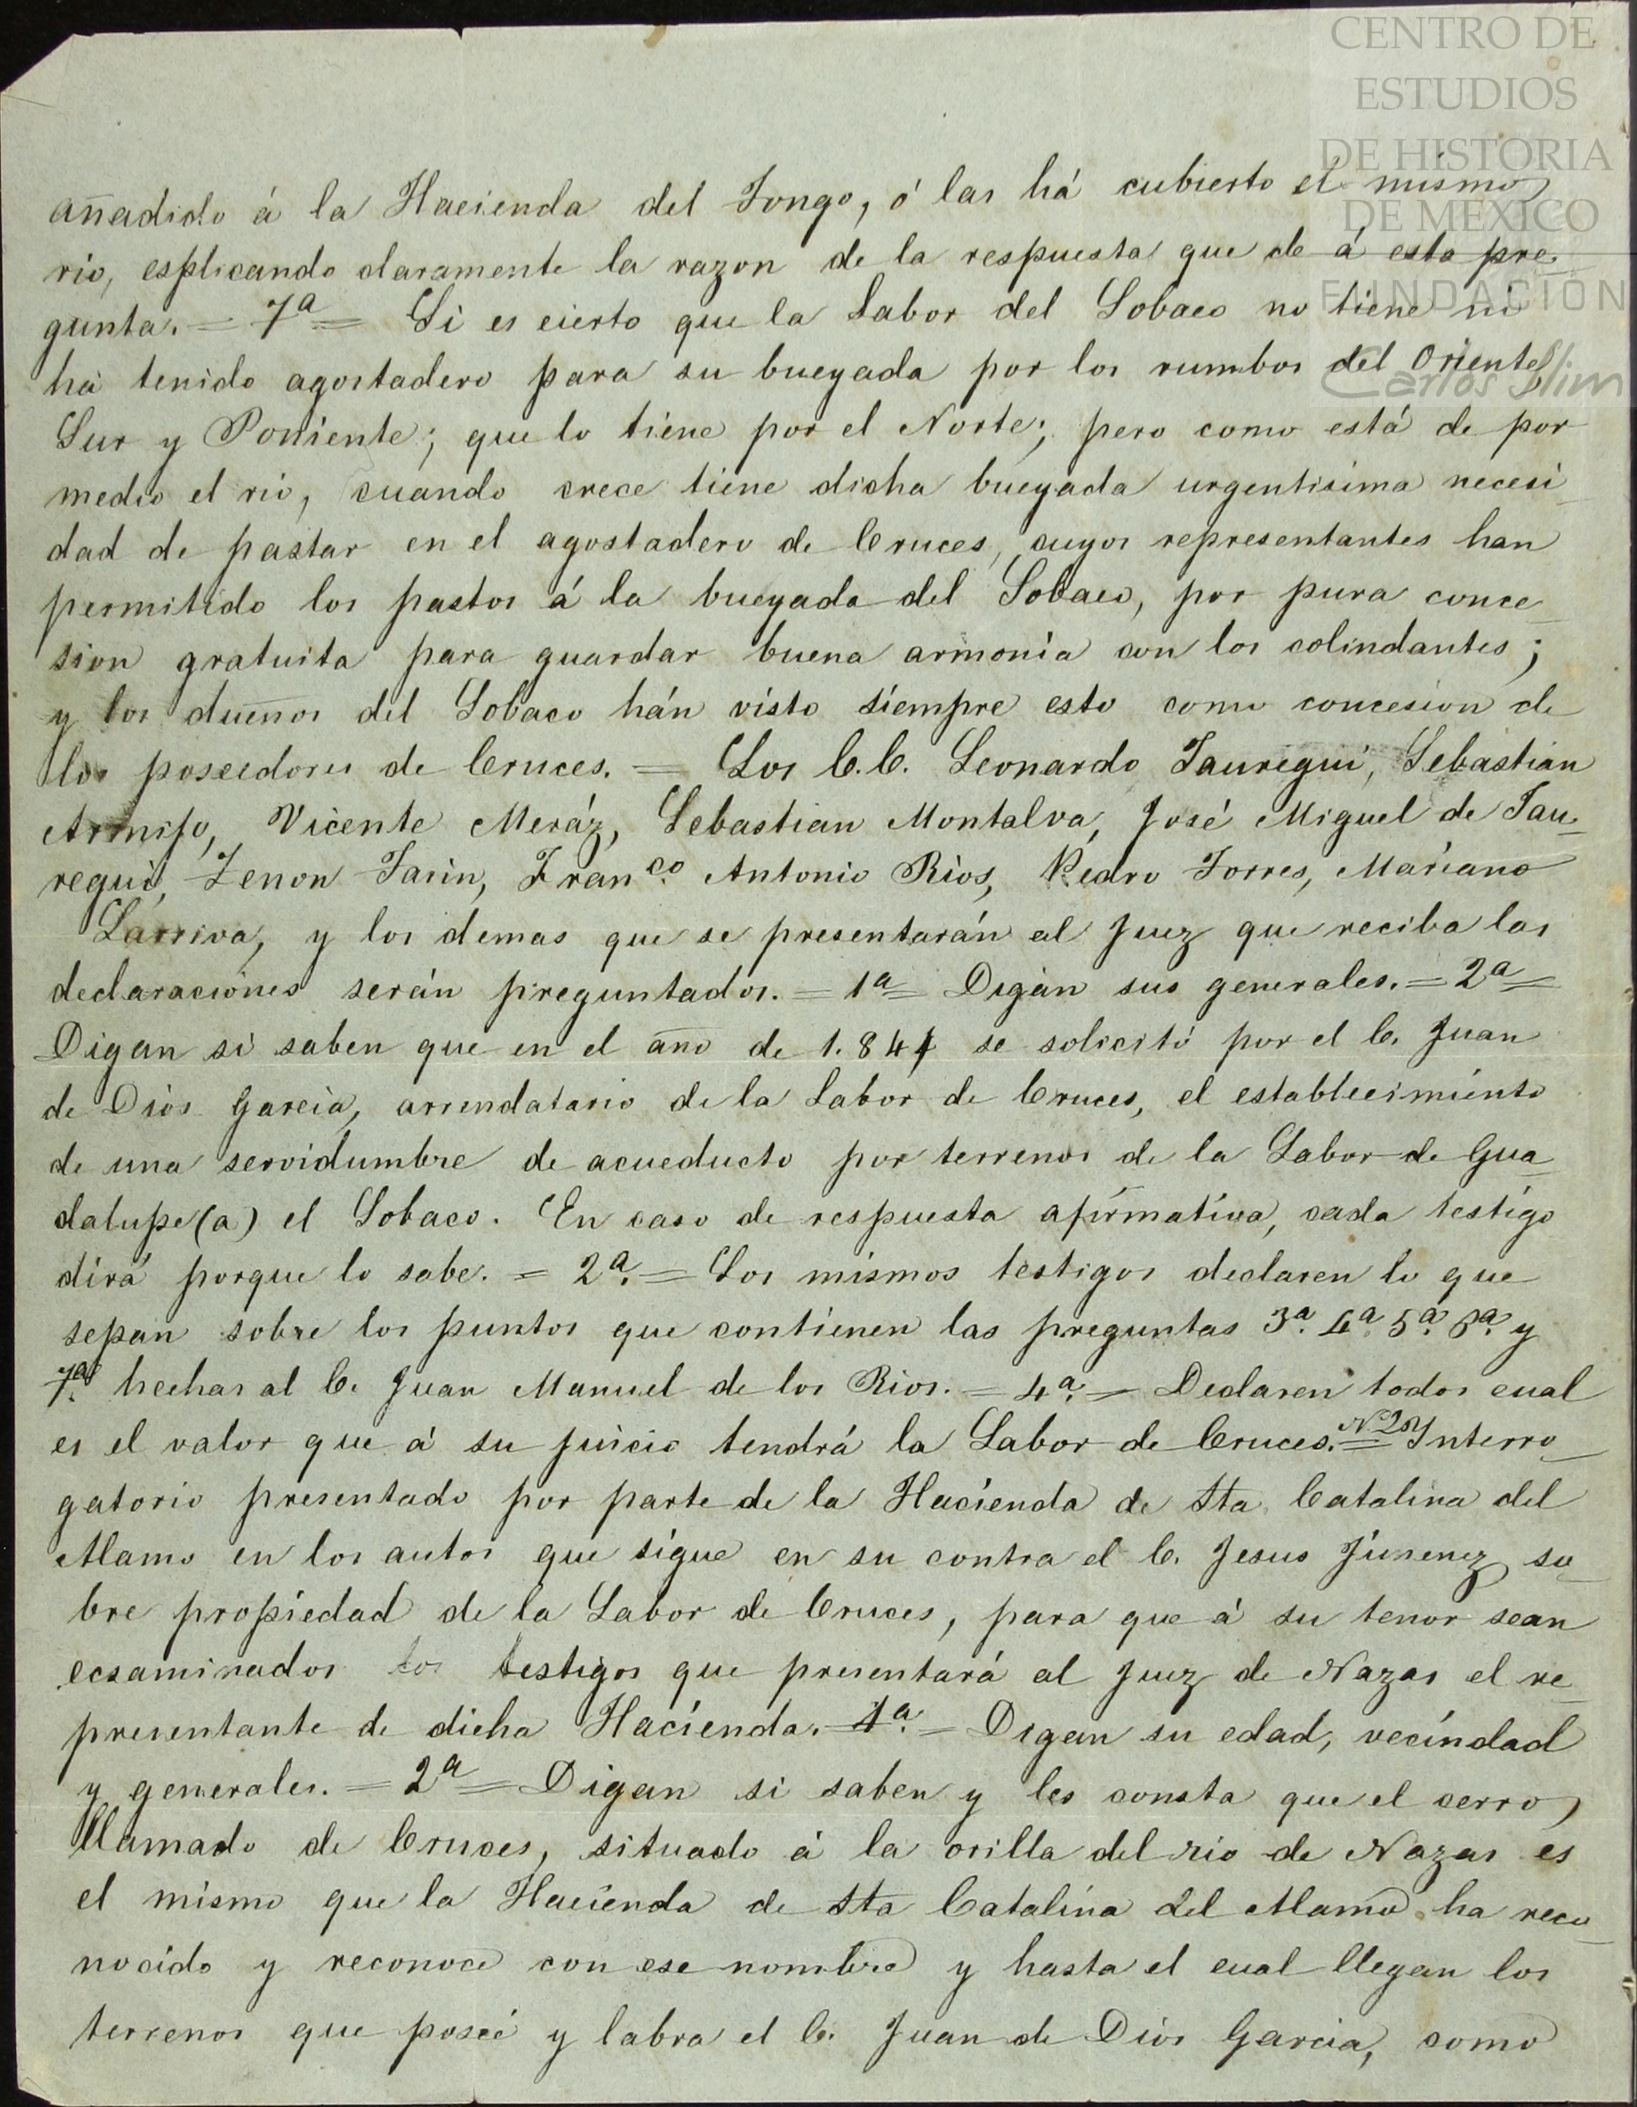 CENTRO DE
ESTUDIOS
DE HISTORIA
DE MEXICO
FUNDACIÓN
Carlos Slim
añadido á la Hacienda del Tongo, ó las há cubierto el mismo
rio, esplicando claramente la razon de la respuesta que dé á esta pre-
gunta. = 7ª = Si es cierto que la Labor del Sobaco no tiene ni
ha tenido agostadero para su bueyada por los rumbos del Oriente
Sur y Poniente; que lo tiene por el Norte; pero como está de por
medio el rio, cuando crece tiene dicha bueyada urgentisima necesi
dad de pastar en el agostadero de Cruces, cuyos representantes han
permitido los pastos á la bueyada del Sobaco, por pura conce
sion gratuita para guardar buena armonía con los colindantes;
y los dueños del Sobaco hán visto siempre esto como concesion de
los poseedores de Cruces. = Los C.C. Leonardo Jauregui, Sebastian
Armijo, Vicente Meráz, Sebastian Montalva, José Miguel de Jau-
regui, Zenon Farin, Franco. Antonio Rios, Pedro Torres, Mariano
Larriva, y los demas que se presentarán al Juez que reciba las
declaraciones serán preguntados. = 1ª = Digan sus generales. = 2ª =
Digan si saben que en el año de 1.844 se solicitó por el C. Juan
de Dios Garcia, arrendatario de la Labor de Cruces, el establecimiento
de una servidumbre de acueducto por terrenos de la Labor de Gua
dalupe (a) el Sobaco. En caso de respuesta afirmativa, cada testigo
dirá porque lo sabe. = 2ª. = Los mismos testigos declaren lo que
sepan sobre los puntos que contienen las preguntas 3ª. 4ª. 5ª. 6ª. y
7ª. hechas al C. Juan Manuel de los Rios. = 4ª. = Declaren todos cual
es el valor que á su juicio tendrá la Labor de Cruces. = Nº 28 Interro
gatorio presentado por parte de la Hacienda de Sta. Catalina del
Alamo en los autos que sigue en su contra el C. Jesus Jimenez so
bre propiedad de la Labor de Cruces, para que á su tenor sean
ecsaminados los testigos que presentará al Juez de Nazas el re
presentante de dicha Hacienda. 1ª. = Digan su edad, vecindad
y generales. = 2ª = Digan si saben y les consta que el cerro
llamado de Cruces, situado á la orilla del rio de Nazas es
el mismo que la Hacienda de Sta Catalina del Alamo ha reco
nocido y reconoce con ese nombre y hasta el cual llegan los
terrenos que poseé y labra el C. Juan de Dios Garcia, como